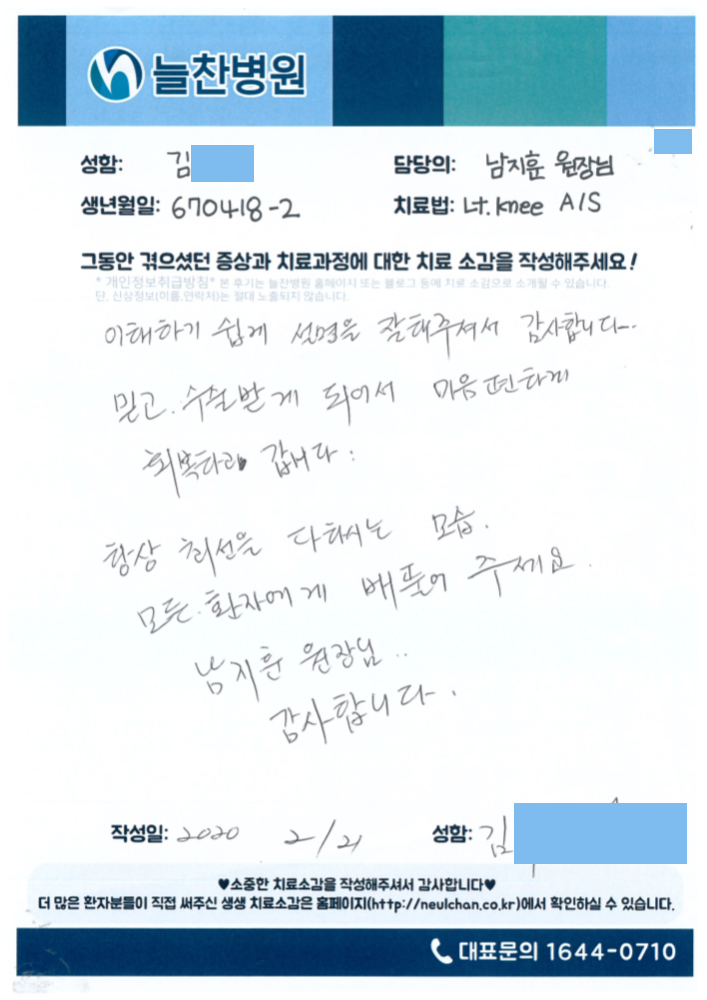 늘찬병원
성함: 김
담당의: 남지훈 원장님
생년월일: 670418-2
치료법: Lt. knee A/S
그동안 겪으셨던 증상과 치료과정에 대한 치료 소감을 작성해주세요!
* 개인정보취급방침* 본 후기는 늘찬병원 홈페이지 또는 블로그 등에 치료 소감으로 소개될 수 있습니다.
단, 신상정보(이름,연락처)는 절대 노출되지 않습니다.
이해하기 쉽게 설명을 잘해주셔서 감사합니다~
믿고. 수술받게 되어서 마음 편하게
회복하고 갑니다:
항상 최선을 다하시는 모습.
모든. 환자에게 베풀어 주세요.
남지훈 원장님..
감사합니다.
작성일: 2020 2/21
성함: 김
♥소중한 치료소감을 작성해주셔서 감사합니다♥
더 많은 환자분들이 직접 써주신 생생 치료소감은 홈페이지(http://neulchan.co.kr)에서 확인하실 수 있습니다.
대표문의 1644-0710